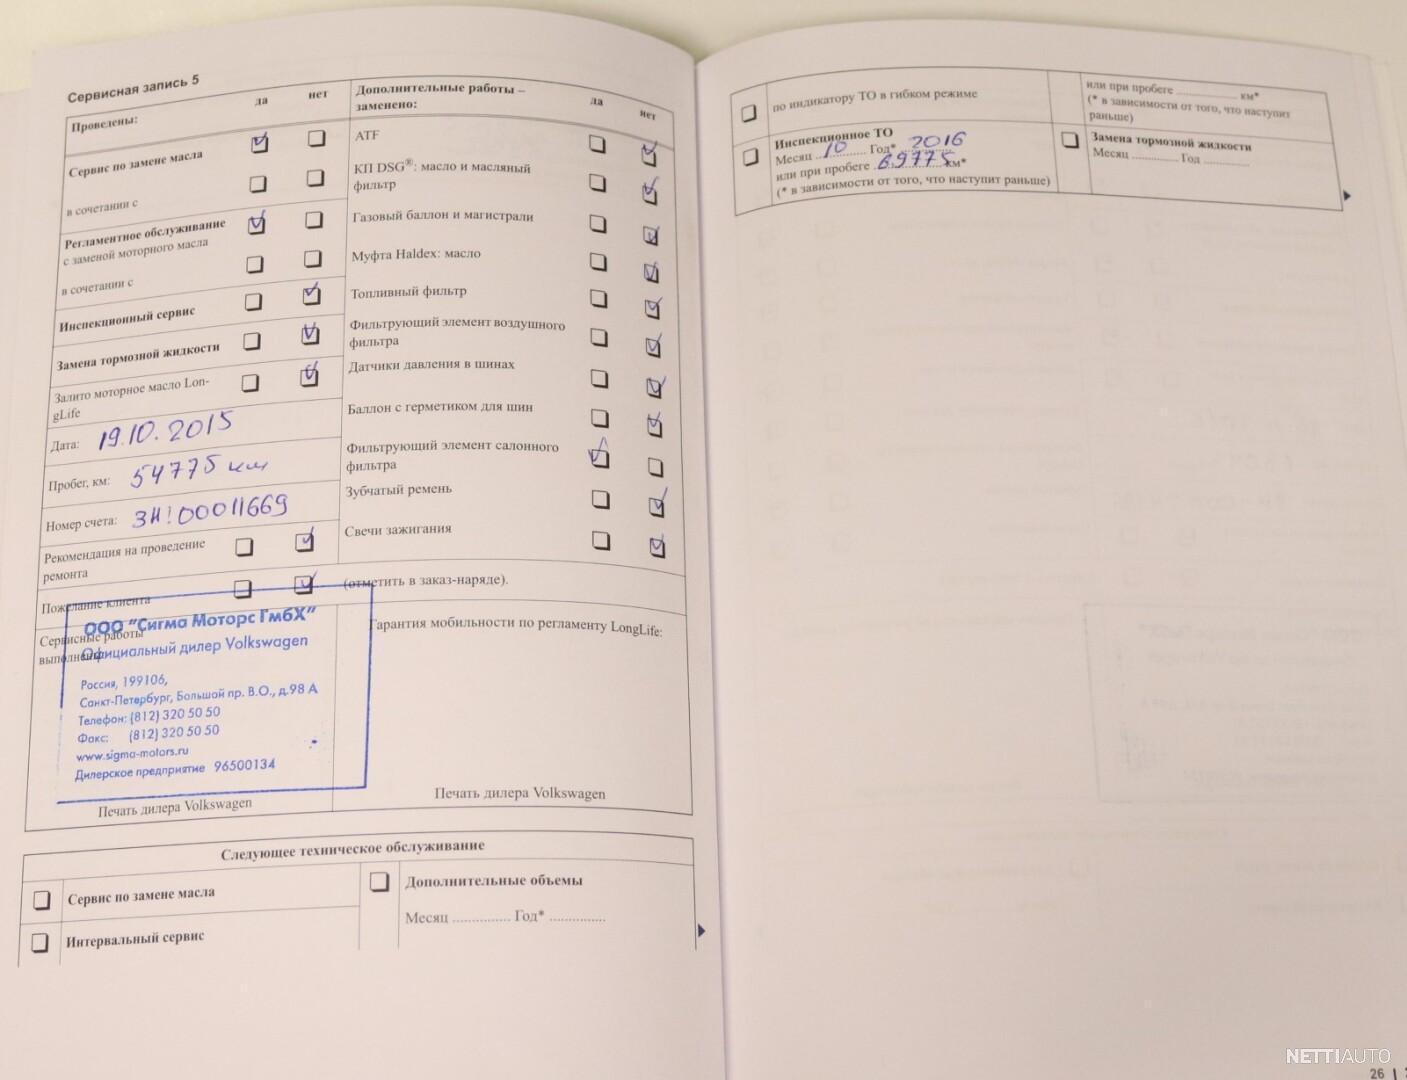 Сервисная запись 5
Проведены:
да
нет
Сервис по замене масла
в сочетании с
Регламентное обслуживание
с заменой моторного масла
в сочетании с
Инспекционный сервис
Замена тормозной жидкости
Залито моторное масло Lon-
gLife
Дата: 19.10.2015
Пробег, км: 54775 км
Номер счета: ЗН!00011669
Рекомендация на проведение
ремонта
Пожелание клиента
(отметить в заказ-наряде).
Дополнительные работы –
заменено:
да
нет
ATF
КП DSG®: масло и масляный
фильтр
Газовый баллон и магистрали
Муфта Haldex: масло
Топливный фильтр
Фильтрующий элемент воздушного
фильтра
Датчики давления в шинах
Баллон с герметиком для шин
Фильтрующий элемент салонного
фильтра
Зубчатый ремень
Свечи зажигания
Сервисные работы
выполнены:
ООО "Сигма Моторс ГмбХ"
Официальный дилер Volkswagen
Россия, 199106,
Санкт-Петербург, Большой пр. В.О., д.98 А
Телефон: (812) 320 50 50
Факс: (812) 320 50 50
www.sigma-motors.ru
Дилерское предприятие 96500134
Печать дилера Volkswagen
Гарантия мобильности по регламенту LongLife:
Печать дилера Volkswagen
Следующее техническое обслуживание
Сервис по замене масла
Интервальный сервис
Дополнительные объемы
Месяц ............... Год* ..............
по индикатору ТО в гибком режиме
или при пробеге ............... км*
(* в зависимости от того, что наступит
раньше)
Инспекционное ТО
Месяц 10 Год* 2016
или при пробеге 69775 км*
(* в зависимости от того, что наступит раньше)
Замена тормозной жидкости
Месяц ............ Год ............
26
NETTIAUTO